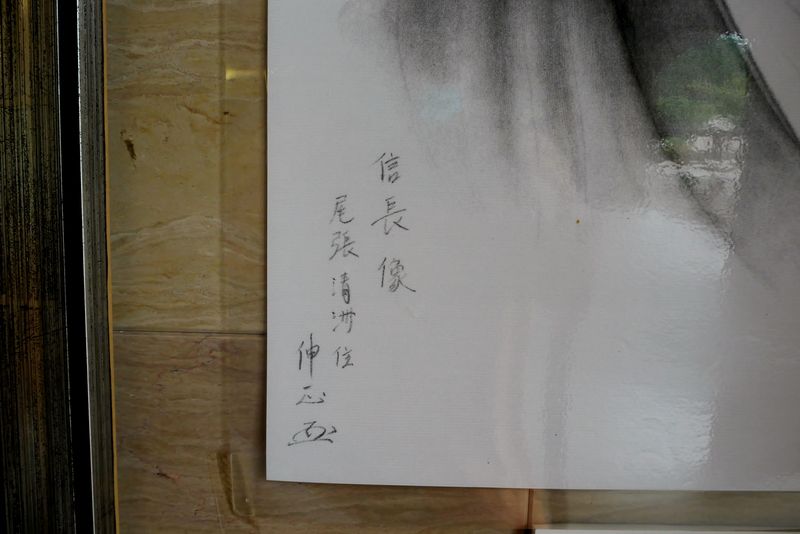 信長像
尾張清洲住
伸正画